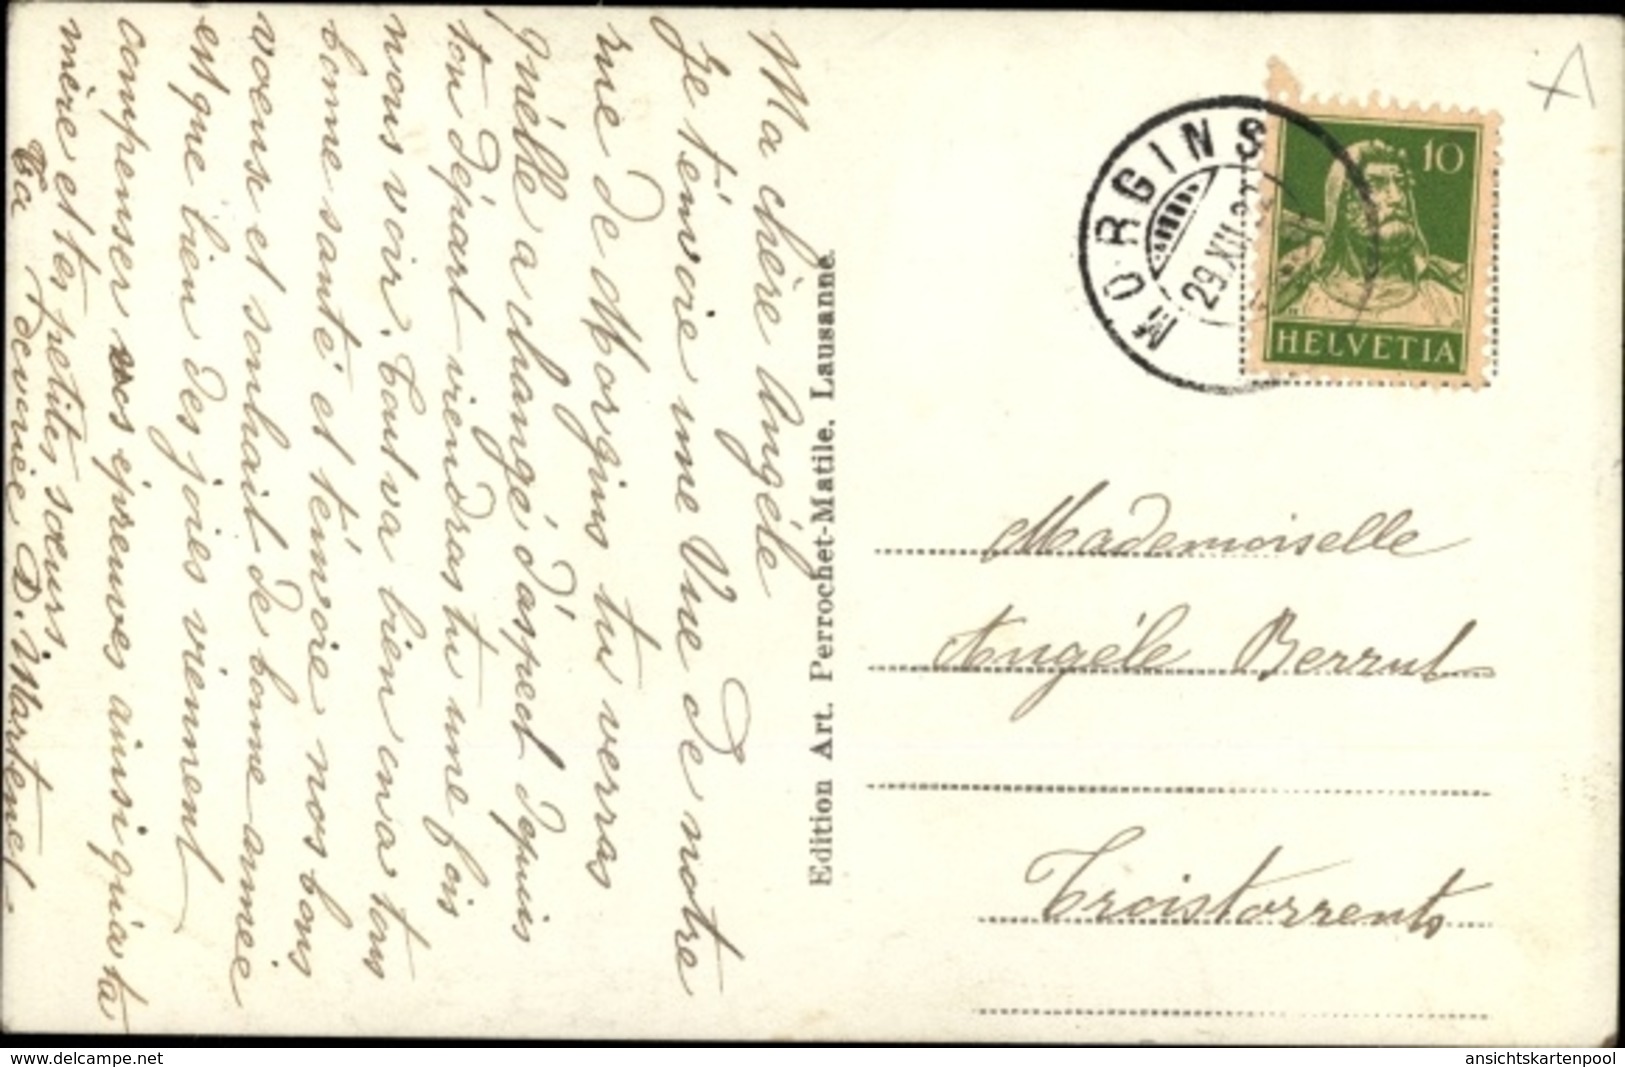 Ma chère Angéle
Je t'envoie une Vue de notre
rue de Morgins tu verras
qu'élle a changé d'aspect depuis
ton départ viendras tu une fois
nous voir. tout va bien on a tous
bonne santé et t'envoie nos bons
voeux et souhait de bonne année
est que bien des joies viennent
compenser vos épreuves ainsi qu'a ta
mère et tes petites sœurs
Ta D. Martenet.
Edition Art. Perrochet-Matile, Lausanne
MORGINS
29.XII.
10
HELVETIA
Mademoiselle
Angéle Berrut
Troistorrents
www.delcampe.net
ansichtskartenpool